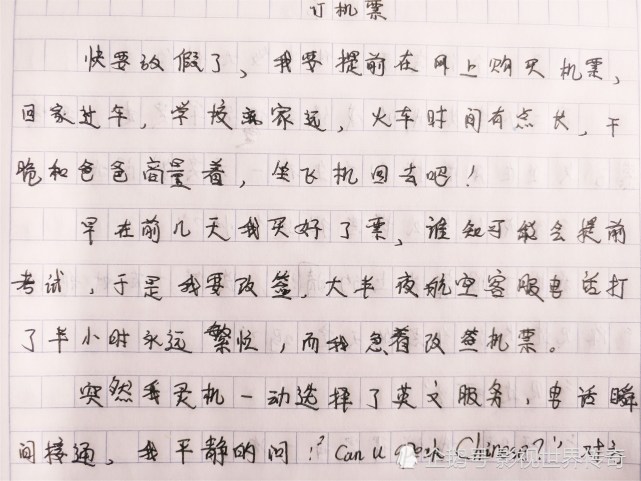 订机票
快要放假了，我要提前在网上购买机票，
回家过年，学校离家远，火车时间有点长，干
脆和爸爸商量着，坐飞机回去吧！
早在前几天我买好了票，谁知可能会提前
考试，于是我要改签，大半夜航空客服电话打
了半小时永远繁忙，而我急着改签机票。
突然我灵机一动选择了英文服务，电话瞬
间接通，我平静的问："Can u speak Chinese?" 对方
企鹅号 影视世界传奇